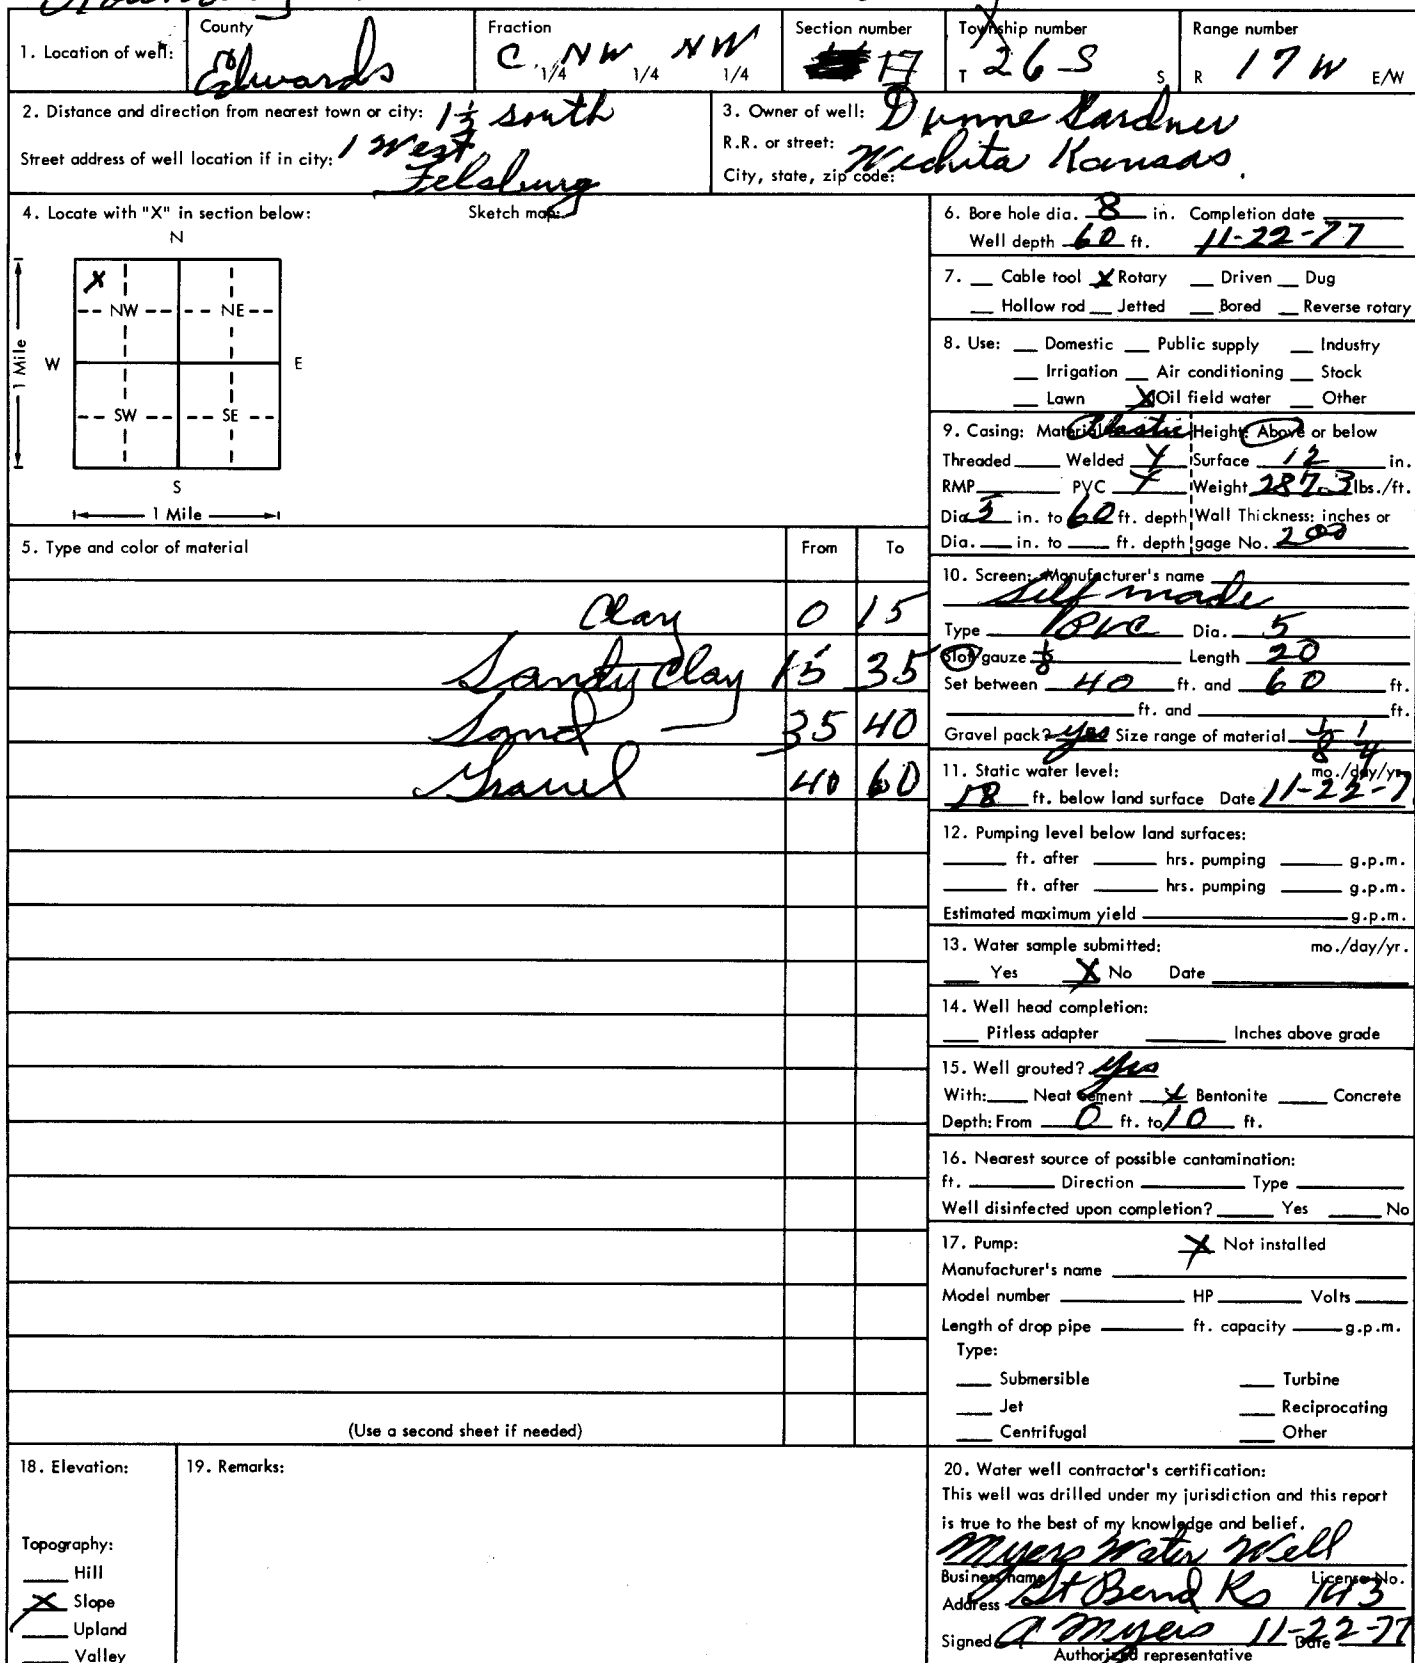 County Fraction Section number Township number Range number
1. Location of well: Edwards C 1/4 NW 1/4 NW 1/4 17 T 26 S S R 17 W E/W
2. Distance and direction from nearest town or city: 1 1/2 south
1 West
Street address of well location if in city: Felsburg
3. Owner of well: Dunne Gardner
R.R. or street:
City, state, zip code: Wichita Kansas.
4. Locate with "X" in section below: Sketch map:
N
X
NW NE
1 Mile W E
SW SE
S
1 Mile
5. Type and color of material From To
Clay 0 15
Sandy Clay 15 35
Sand 35 40
Gravel 40 60
(Use a second sheet if needed)
6. Bore hole dia. 8 in. Completion date
Well depth 60 ft. 11-22-77
7. Cable tool X Rotary Driven Dug
Hollow rod Jetted Bored Reverse rotary
8. Use: Domestic Public supply Industry
Irrigation Air conditioning Stock
Lawn X Oil field water Other
9. Casing: Material Plastic Height: Above or below
Threaded Welded Y Surface 12 in.
RMP PVC Y Weight 287.3 lbs./ft.
Dia. 5 in. to 60 ft. depth Wall Thickness: inches or
Dia. in. to ft. depth gage No. 200
10. Screen: Manufacturer's name
Self made
Type PVC Dia. 5
Slot/gauze 1/8 Length 20
Set between 40 ft. and 60 ft.
ft. and ft.
Gravel pack? yes Size range of material 1/8 1/4
11. Static water level: mo./day/yr.
18 ft. below land surface Date 11-22-7
12. Pumping level below land surfaces:
ft. after hrs. pumping g.p.m.
ft. after hrs. pumping g.p.m.
Estimated maximum yield g.p.m.
13. Water sample submitted: mo./day/yr.
Yes X No Date
14. Well head completion:
Pitless adapter Inches above grade
15. Well grouted? yes
With: Neat cement X Bentonite Concrete
Depth: From 0 ft. to 10 ft.
16. Nearest source of possible cantamination:
ft. Direction Type
Well disinfected upon completion? Yes No
17. Pump: X Not installed
Manufacturer's name
Model number HP Volts
Length of drop pipe ft. capacity g.p.m.
Type:
Submersible Turbine
Jet Reciprocating
Centrifugal Other
18. Elevation:
Topography:
Hill
X Slope
Upland
Valley
19. Remarks:
20. Water well contractor's certification:
This well was drilled under my jurisdiction and this report
is true to the best of my knowledge and belief.
Myers Water Well
Business name License No.
Address Gt Bend Ks 143
Signed A Myers 11-22-77 Date
Authorized representative